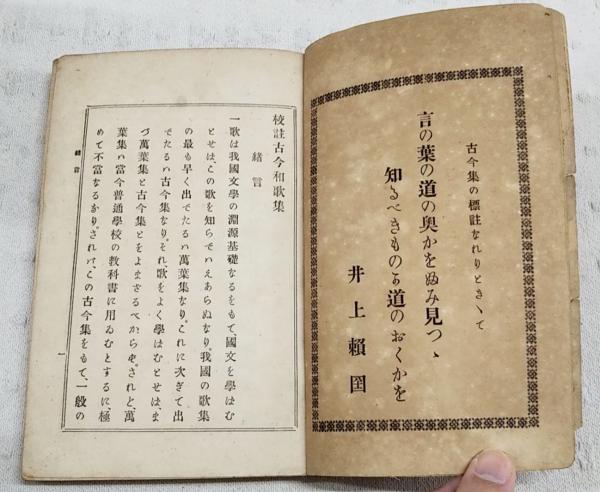 古今集の標註なれりときゝて
言の葉の道の奥かをぬみ見つゝ
知るべきものを道のおくかを
井上賴圀
校註古今和歌集
緒言
一歌は我國文學の淵源基礎なるをもて國文を學はむ
とせは、この歌を知らでハえあらぬなり。我國の歌集
の最も早く出でたるハ萬葉集なり。これに次ぎて出
でたるハ古今集なり。それ歌をよく學はむとせは、ま
づ萬葉集と古今集とをよまざるべからず。されど、萬
葉集ハ當今普通學校の教科書に用ゐむとするに、極
めて不當なるかり。されバ、この古今集をもて、一般の
緒言
一